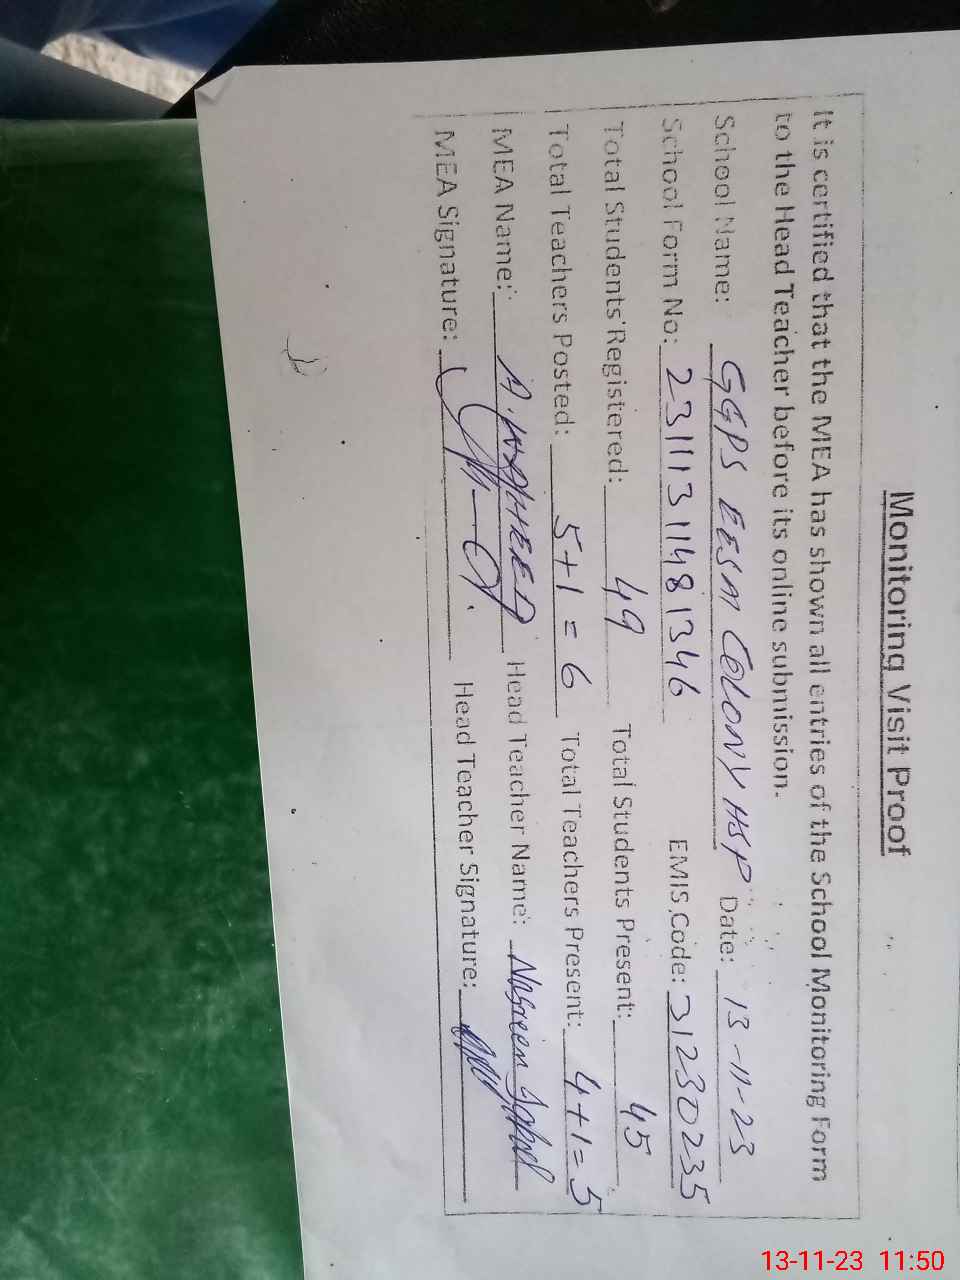 Monitoring Visit Proof
It is certified that the MEA has shown all entries of the School Monitoring Form
to the Head Teacher before its online submission.
School Name: GGPS EESM COLONY HSP Date: 13-11-23
School Form No: 2311131148 1346 EMIS Code: 31230235
Total Students Registered: 49 Total Students Present: 45
Total Teachers Posted: 5+1 = 6 Total Teachers Present: 4+1=5
MEA Name: M. WAHEED Head Teacher Name: Nasreen Iqbal
MEA Signature: Head Teacher Signature:
13-11-23 11:50